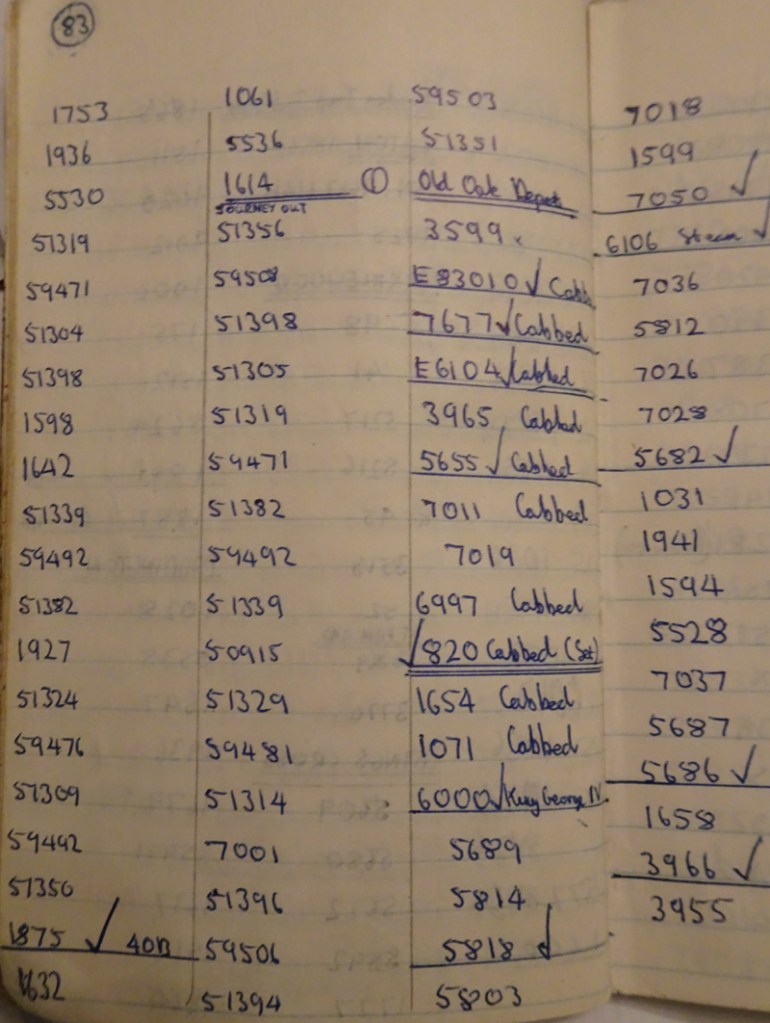 83
1753
1936
5530
51319
59471
51304
51398
1598
1642
51339
59492
51382
1927
51324
59476
51309
59492
51350
1875 ✓ 40B
1632
1061
5536
1614
JOURNEY OUT
51356
59508
51398
51305
51319
59471
51382
59492
51339
50915
51329
59481
51314
7001
51396
59506
51394
59503
51351
① Old Oak Depot
3599
E83010 ✓ Cabbed
7677 ✓ Cabbed
E6104 ✓ Cabbed
3965 Cabbed
5655 ✓ Cabbed
7011 Cabbed
7019
6997 Cabbed
✓ 820 Cabbed (Set)
1654 Cabbed
1071 Cabbed
6000 ✓ King George IV
5689
5814
5818 ✓
5803
7018
1599
7050 ✓
6106 Steam ✓
7036
5812
7026
7028
5682 ✓
1031
1941
1594
5528
7037
5687
5686 ✓
1658
3966 ✓
3955